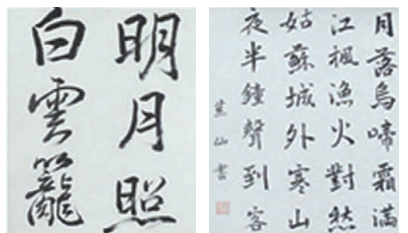 明月照
白雲籠
月落烏啼霜满
江楓漁火對愁
姑蘇城外寒山
夜半鐘聲到客
仙書